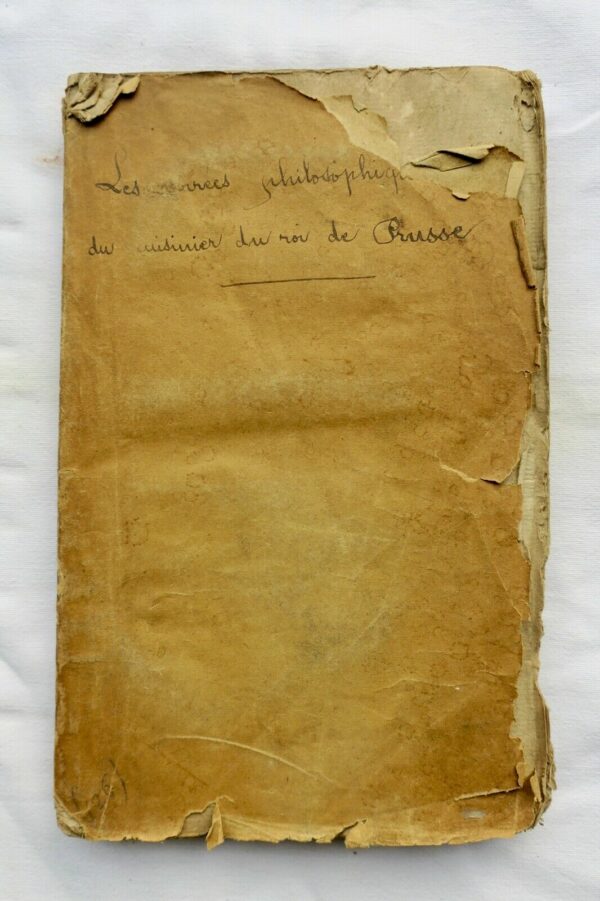 Les soirées philosophiqu
du cuisinier du roi de Prusse